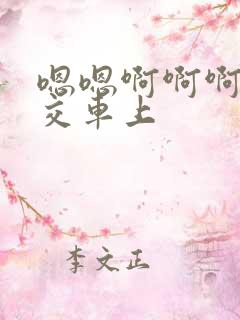 嗯嗯啊啊啊
交车上
李文正